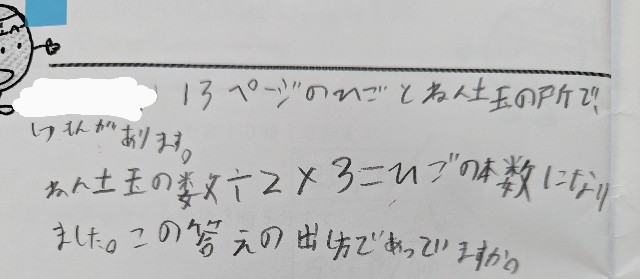 13ページのひごとねん土玉の所で、
しつもんがあります。
ねん土玉の数÷2×3=ひごの本数になり
ました。この答えの出し方であっていますか。